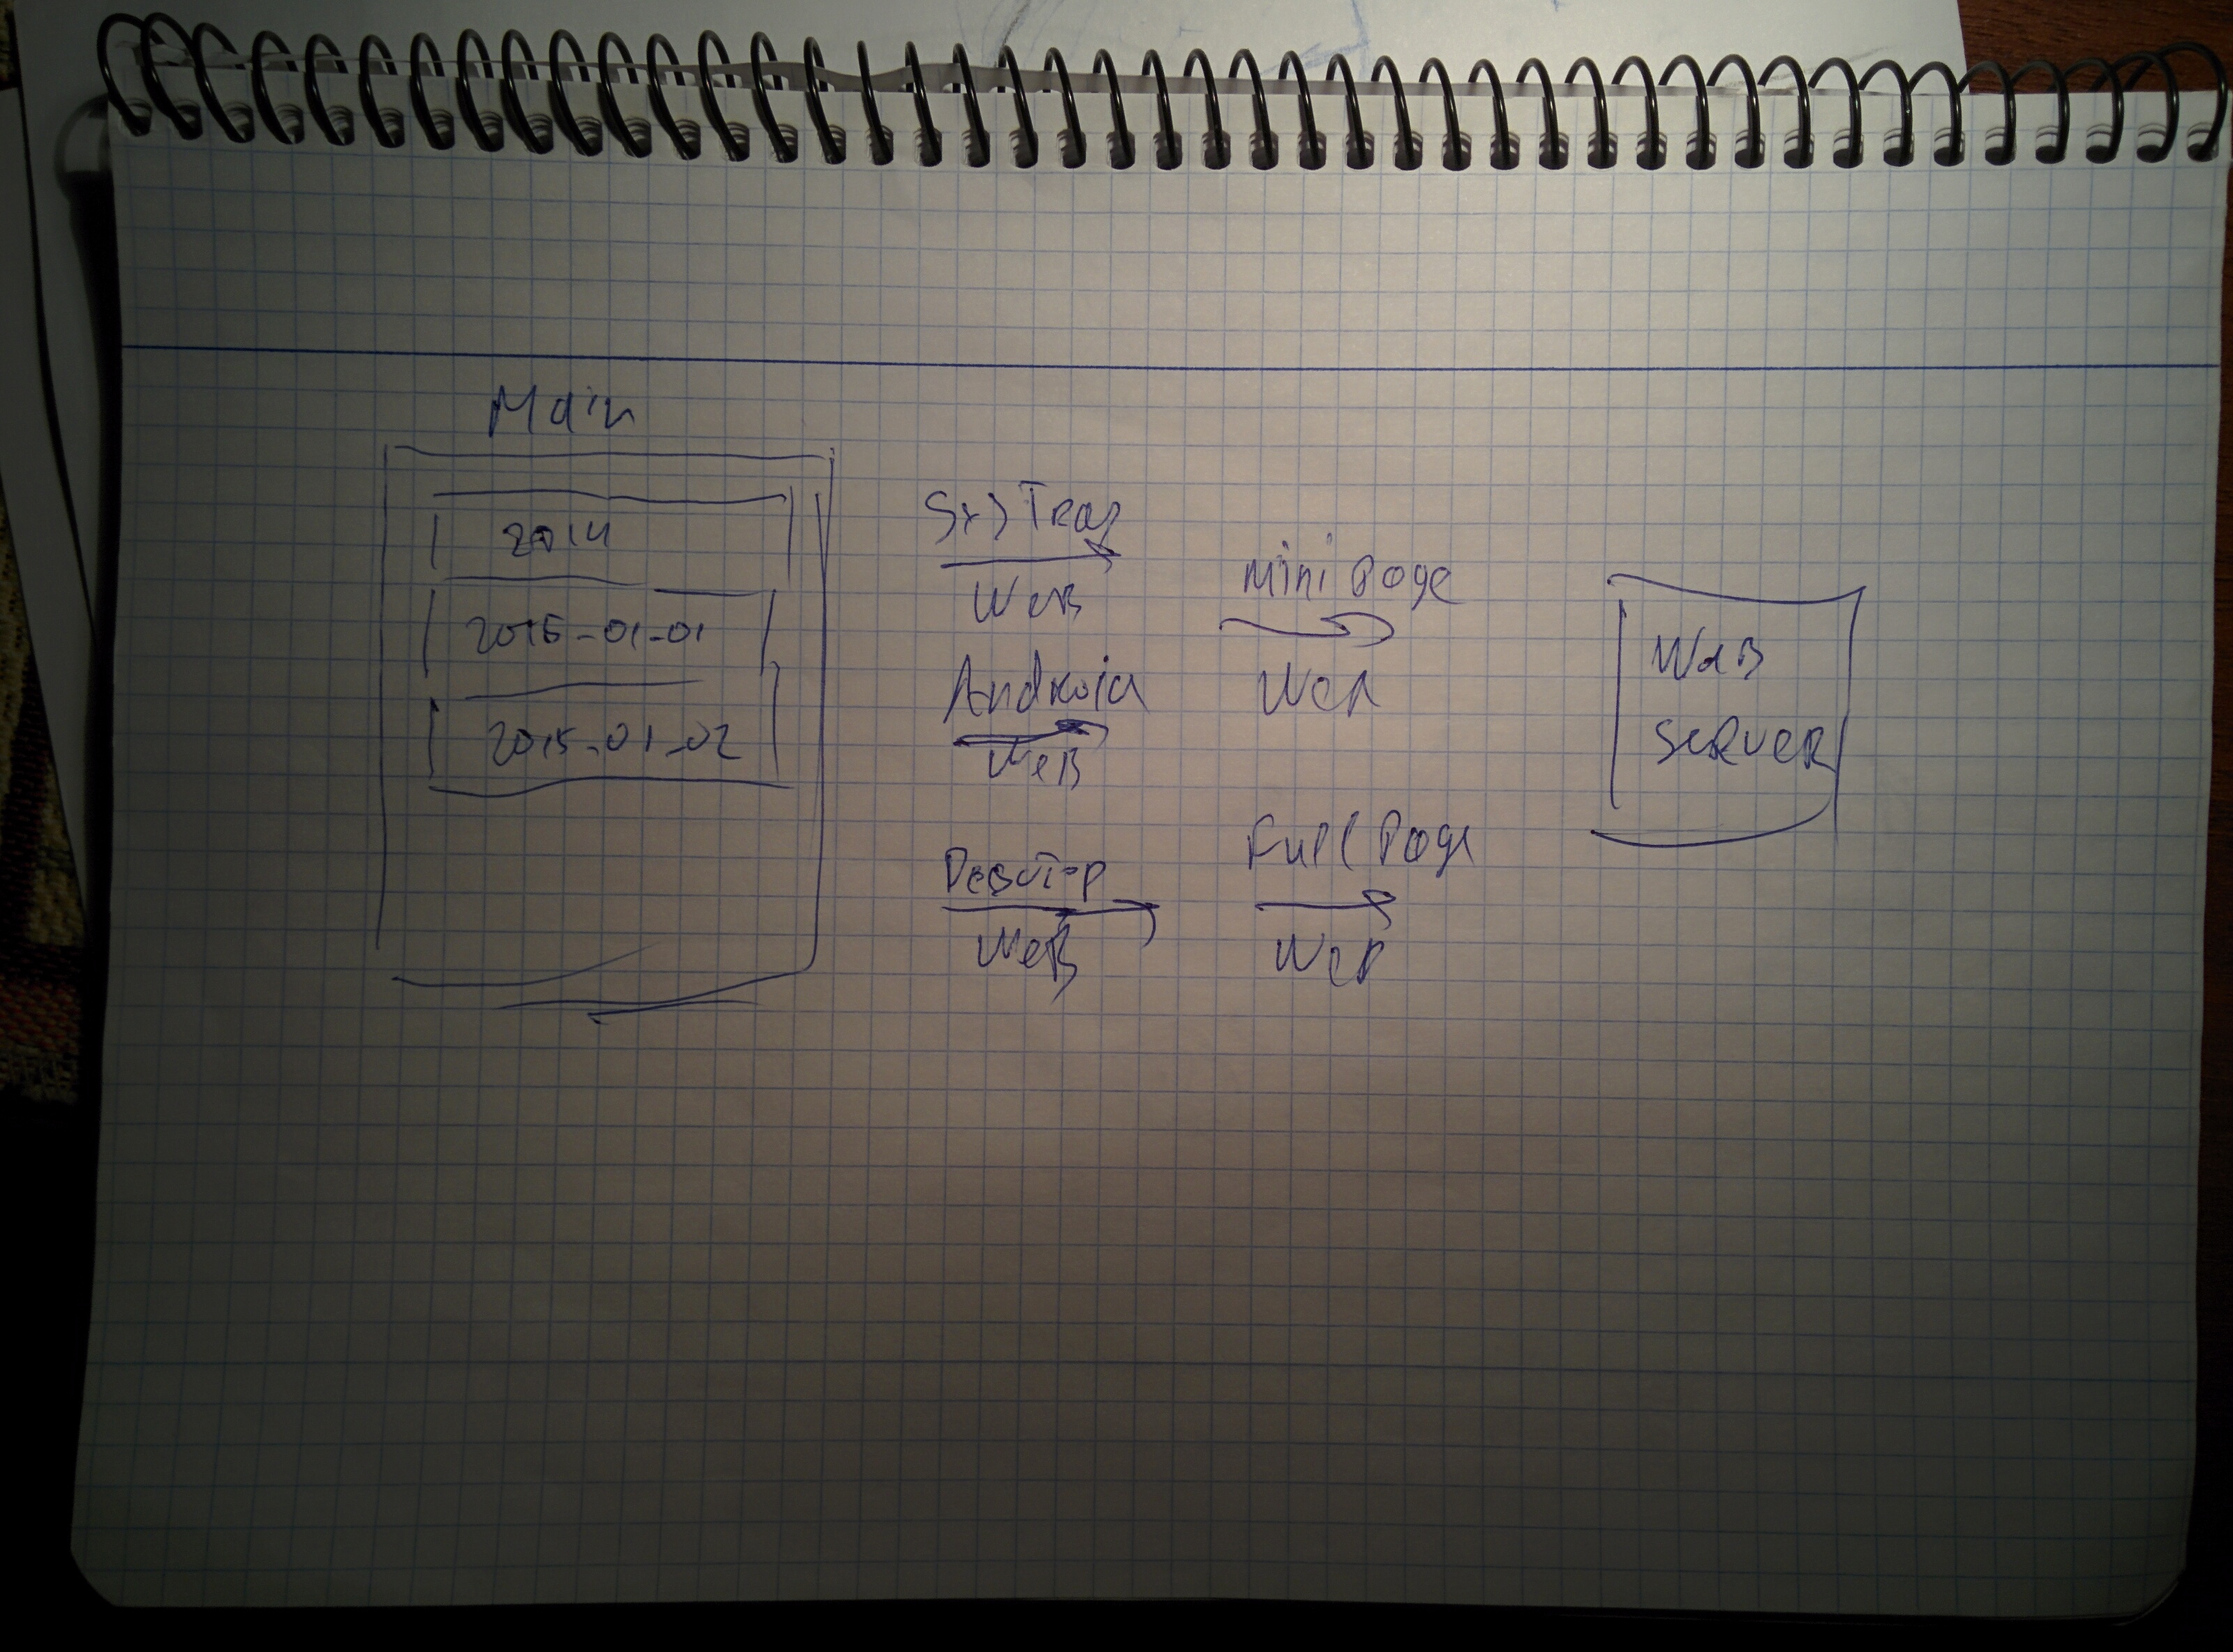 Main
2014
2015-01-01
2015-01-02
SysTray
Web
Android
Web
Desktop
Web
Mini Page
Web
Full Page
Web
Web
Server